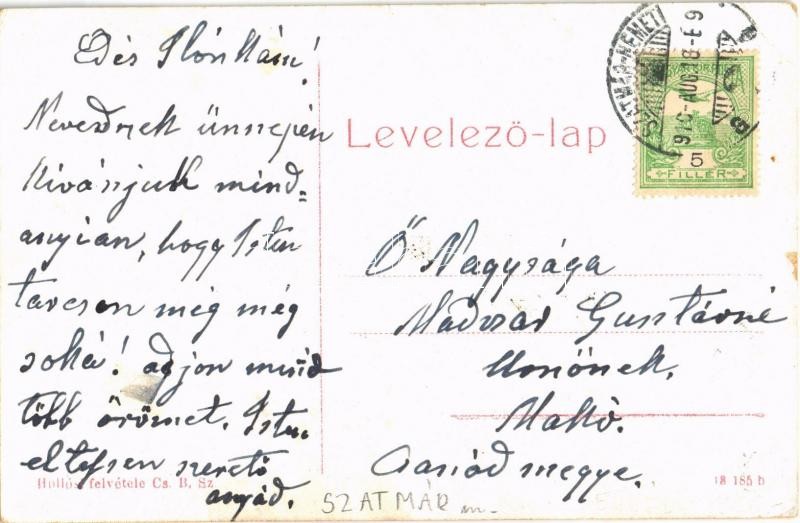 Édes Ilonkám!
Nevednek ünnepén
kivánjuk mind=
anyian, hogy Isten
tarcson még még
soká! adjon minid
több örömet. Isten
eltessen szerető
anyád.
Levelező-lap
SZATMÁR-NÉMETI
910 AUG. 18 - É 9
MAGYAR
5
FILLÉR
Ő Nagysága
Madzsar Gusztávné
Urnőnek.
Makó.
Csanád megye.
Hollósi felvétele Cs. B. Sz
SZATMÁR
18 185 b